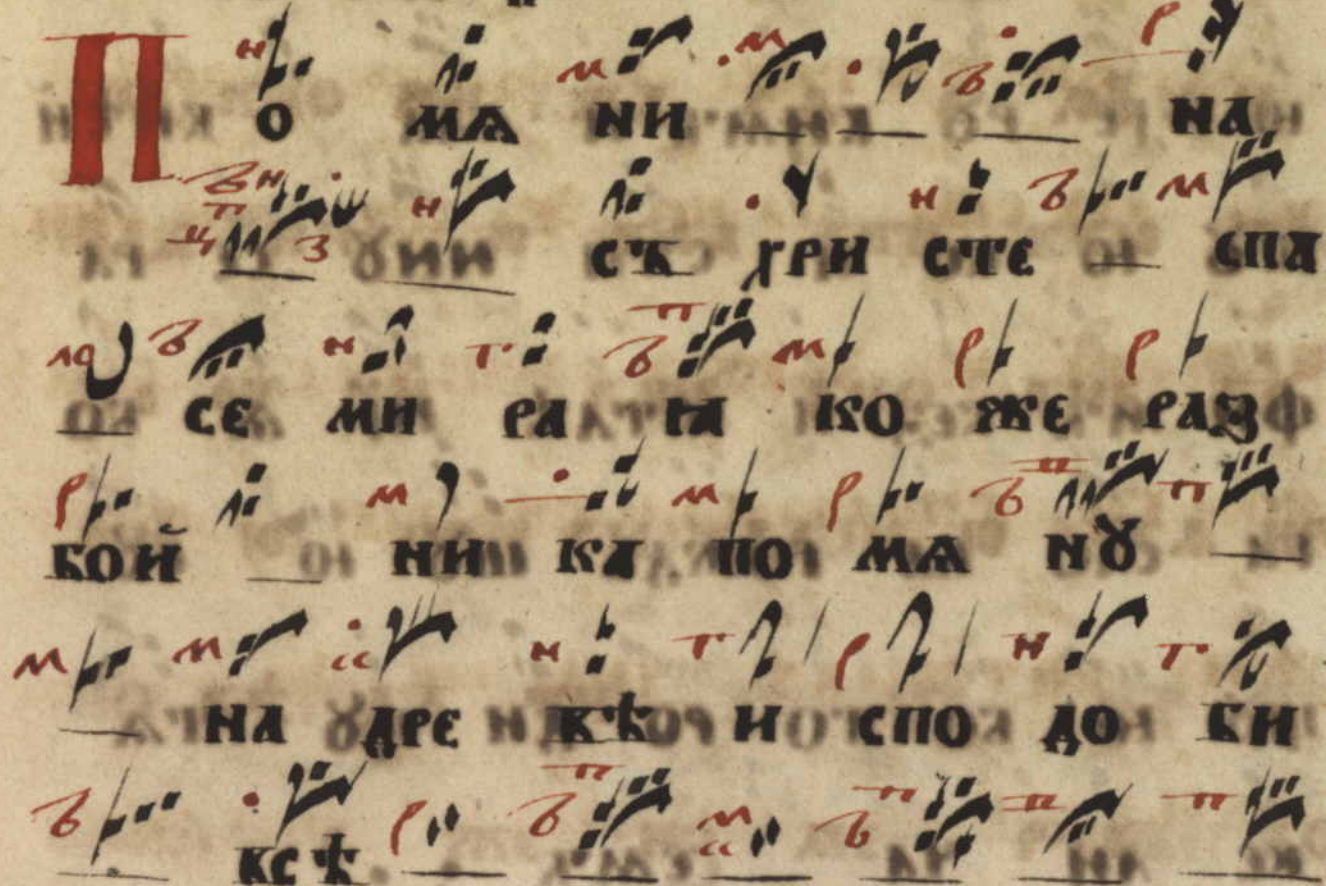 По мѧ ни на
съ хри сте спа
се ми ра ꙗ ко же раз
бой ни ка по мѧ нꙋ
на дре вѣ и спо до би
всѣ